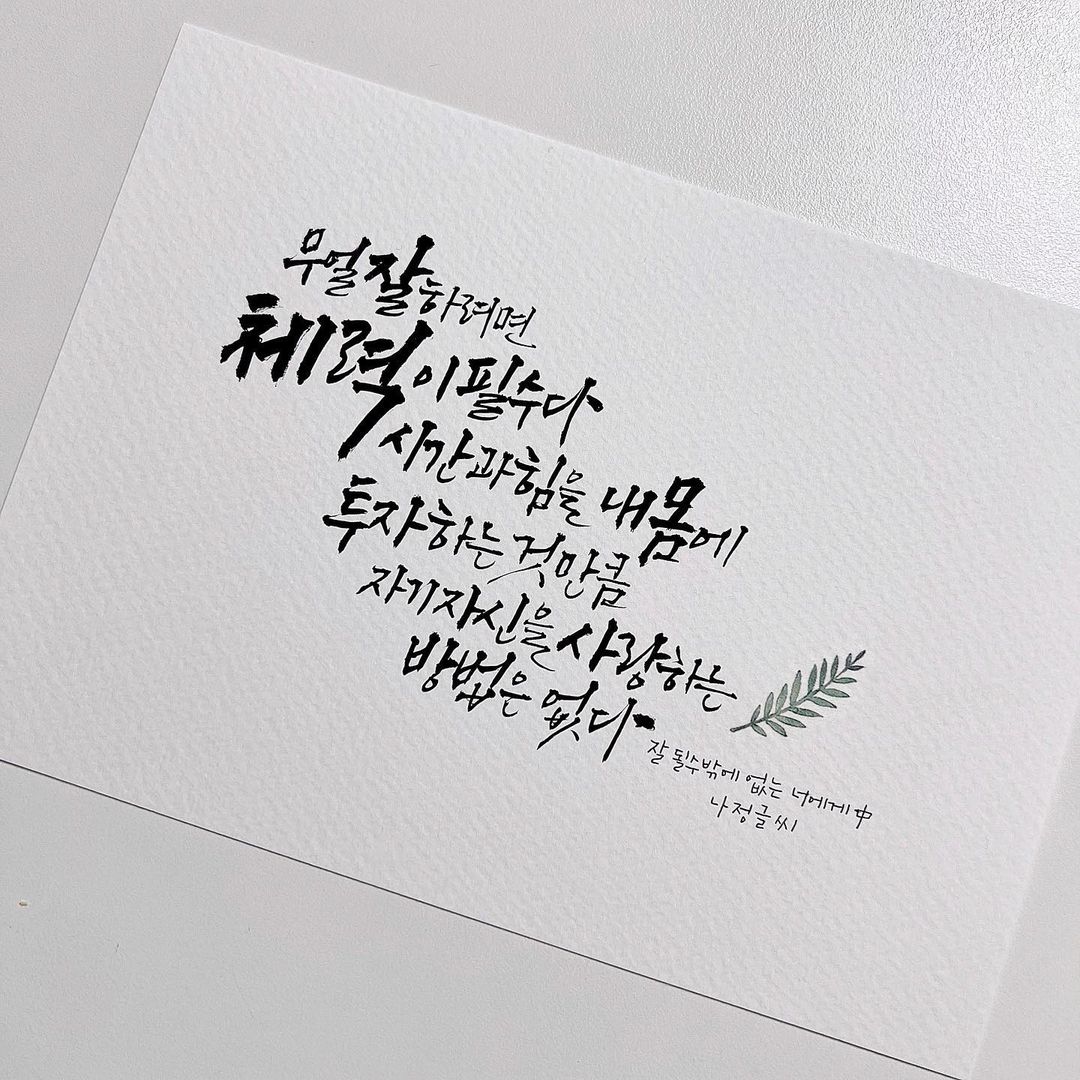 무얼 잘하려면
체력이 필수다
시간과 힘을 내 몸에
투자하는 것만큼
자기 자신을 사랑하는
방법은 없다
잘 될 수밖에 없는 너에게 中
나정글씨